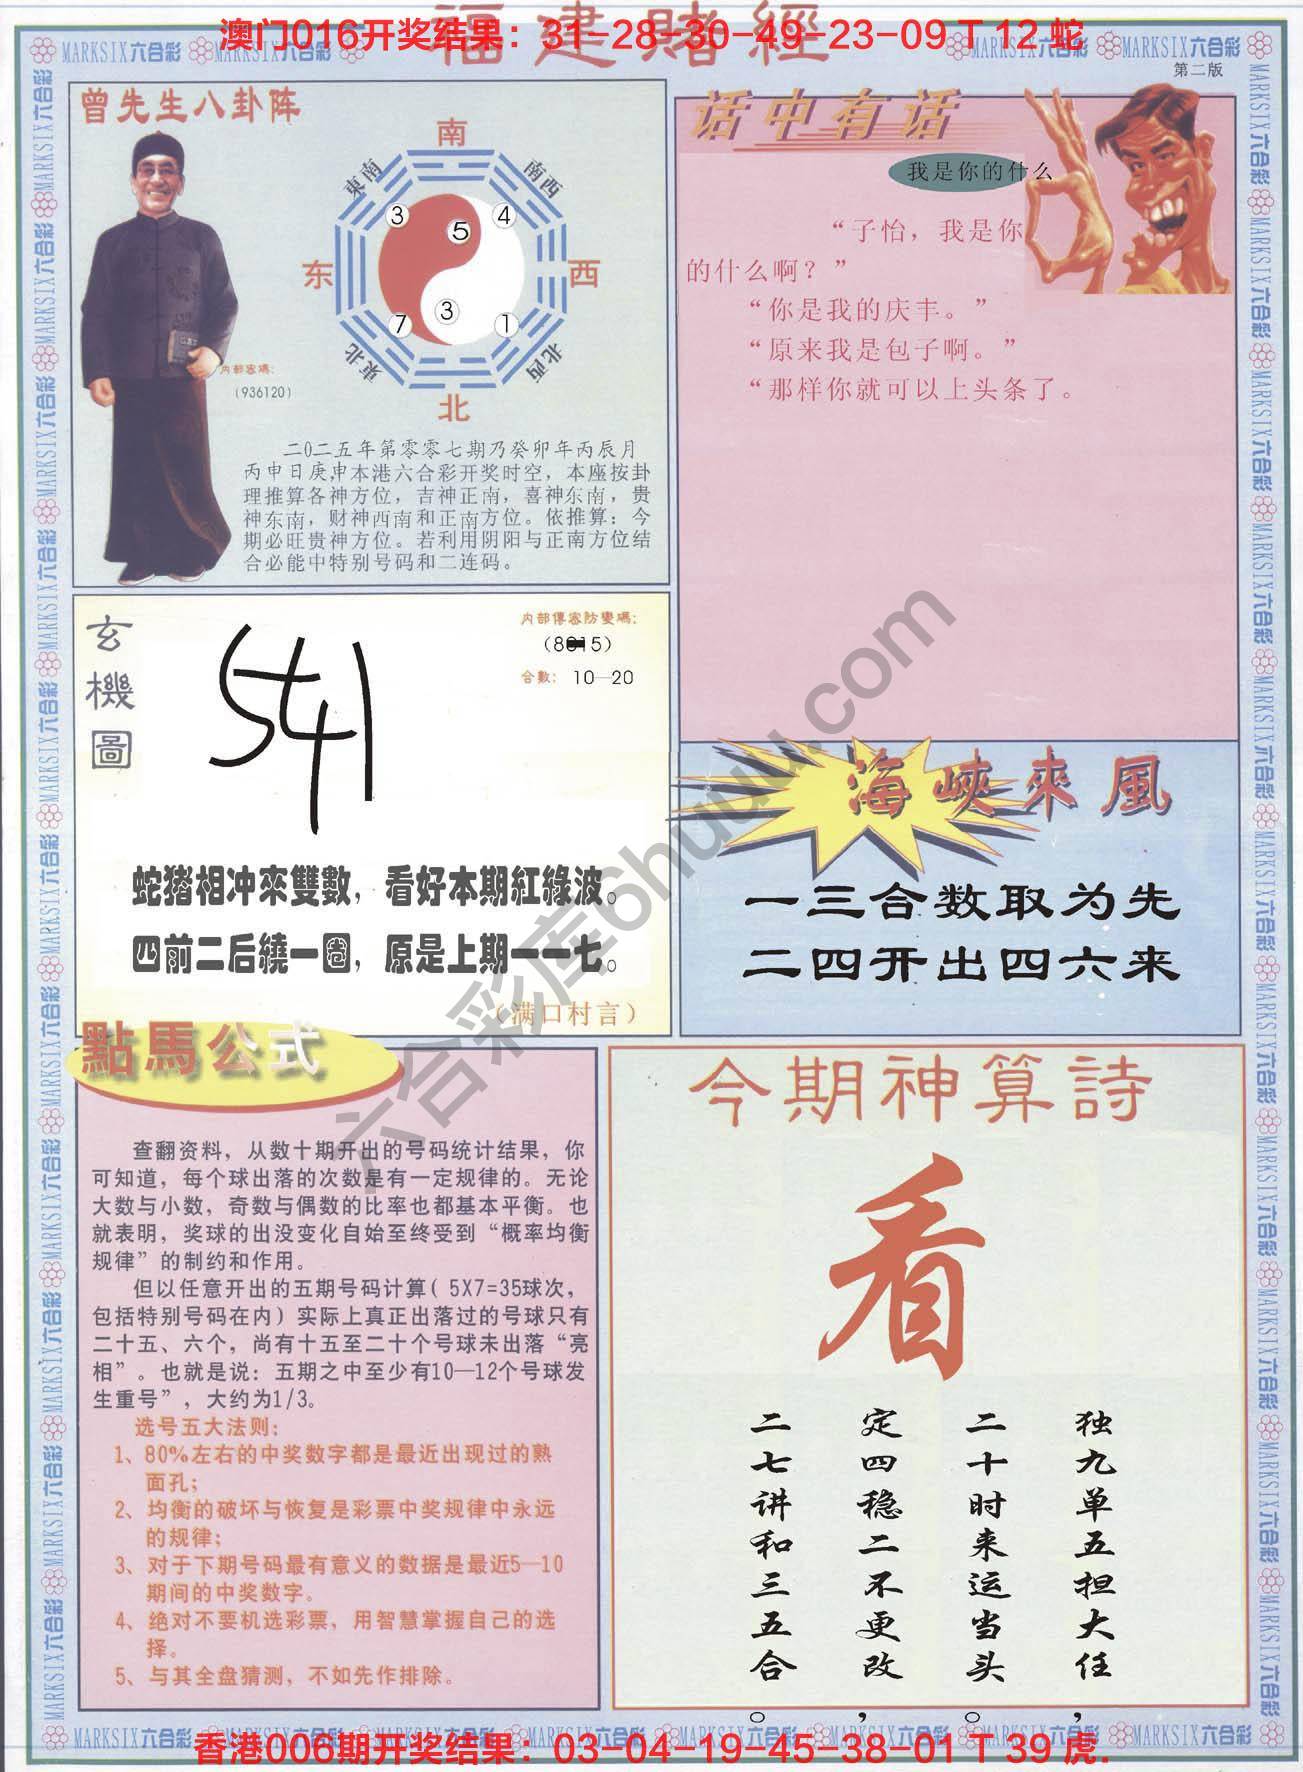 福建賭經
澳门016开奖结果：31-28-30-49-23-09 T 12 蛇
MARKSIX六合彩
第二版
曾先生八卦阵
南
東南
南西
3
4
5
东
西
3
7
1
東北
北西
北
内部密碼：
(936120)
二0二五年第零零七期乃癸卯年丙辰月
丙申日庚申本港六合彩开奖时空，本座按卦
理推算各神方位，吉神正南，喜神东南，贵
神东南，财神西南和正南方位。依推算：今
期必旺贵神方位。若利用阴阳与正南方位结
合必能中特别号码和二连码。
话中有话
我是你的什么
“子怡，我是你
的什么啊？”
“你是我的庆丰。”
“原来我是包子啊。”
“那样你就可以上头条了。
玄機圖
541
内部傳密防變碼：
合數： 10—20
蛇猪相冲來雙數，看好本期紅綠波。
四前二后繞一圈，原是上期一一七。
（满口村言）
海峽來風
一三合数取为先
二四开出四六来
點馬公式
查翻资料，从数十期开出的号码统计结果，你
可知道，每个球出落的次数是有一定规律的。无论
大数与小数，奇数与偶数的比率也都基本平衡。也
就表明，奖球的出没变化自始至终受到“概率均衡
规律”的制约和作用。
但以任意开出的五期号码计算( 5X7=35球次，
包括特别号码在内）实际上真正出落过的号球只有
二十五、六个，尚有十五至二十个号球未出落“亮
相”。也就是说：五期之中至少有10—12个号球发
生重号”，大约为1/3。
选号五大法则：
1、80%左右的中奖数字都是最近出现过的熟
面孔；
2、均衡的破坏与恢复是彩票中奖规律中永远
的规律；
3、对于下期号码最有意义的数据是最近5—10
期间的中奖数字。
4、绝对不要机选彩票，用智慧掌握自己的选
择。
5、与其全盘猜测，不如先作排除。
今期神算詩
看
独九单五担大任，
二十时来运当头。
定四稳二不更改，
二七讲和三五合。
六合彩库6huuu.com
香港006期开奖结果：03-04-19-45-38-01 T 39 虎.